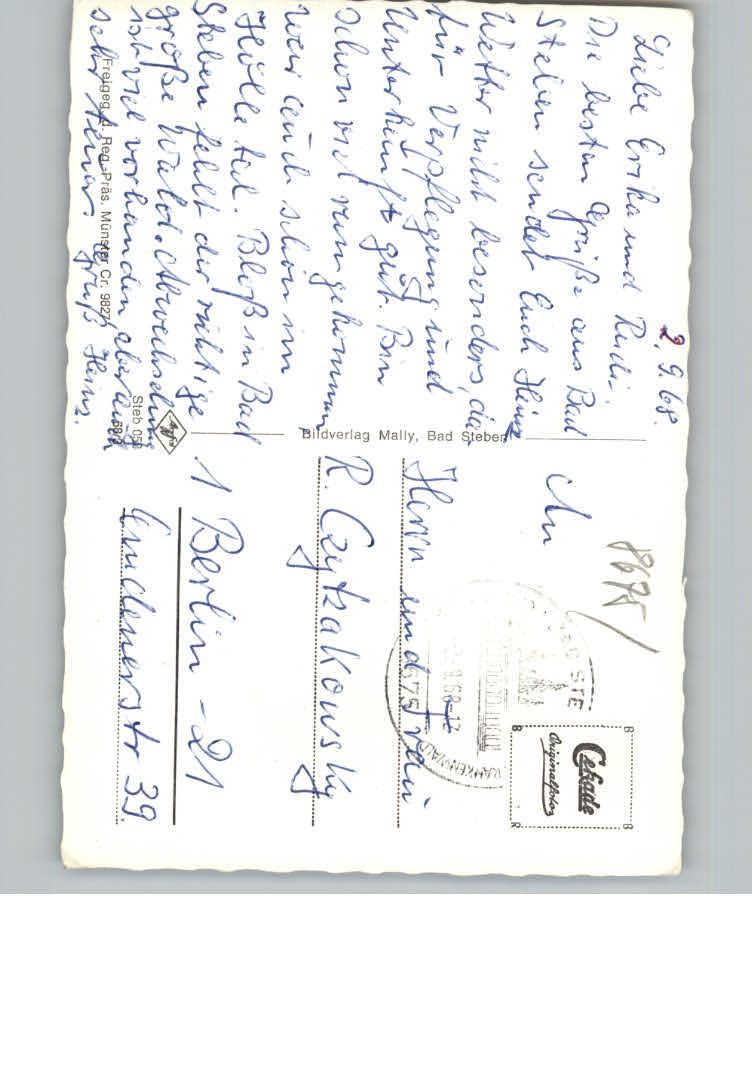 2.9.68.
Liebe Erika und Rudi.
Die besten Grüße aus Bad
Steben sendet Euch Heinz
Wetter nicht besonders, da
für Verpflegung und
Unterkunft gut. Bin
schon viel rumgekommen
war auch schon im
Hölletal. Bloß in Bad
Steben fehlt der richtige
große Wald. Abwechslung
ist viel vorhanden, aber auch
sehr teuer. Gruß Heinz.
Freigeg. d. Reg.-Präs. Münster Cr. 9827
Steb 058
Agfa
Bildverlag Mally, Bad Steben
8675
An
Herrn und Frau
R. Czytzakowsky
1 Berlin - 21
Emdenerstr 39.
STE
9.68-12
8675
FRANKENWALD
Cekade
Originalfoto
B
B
B
R